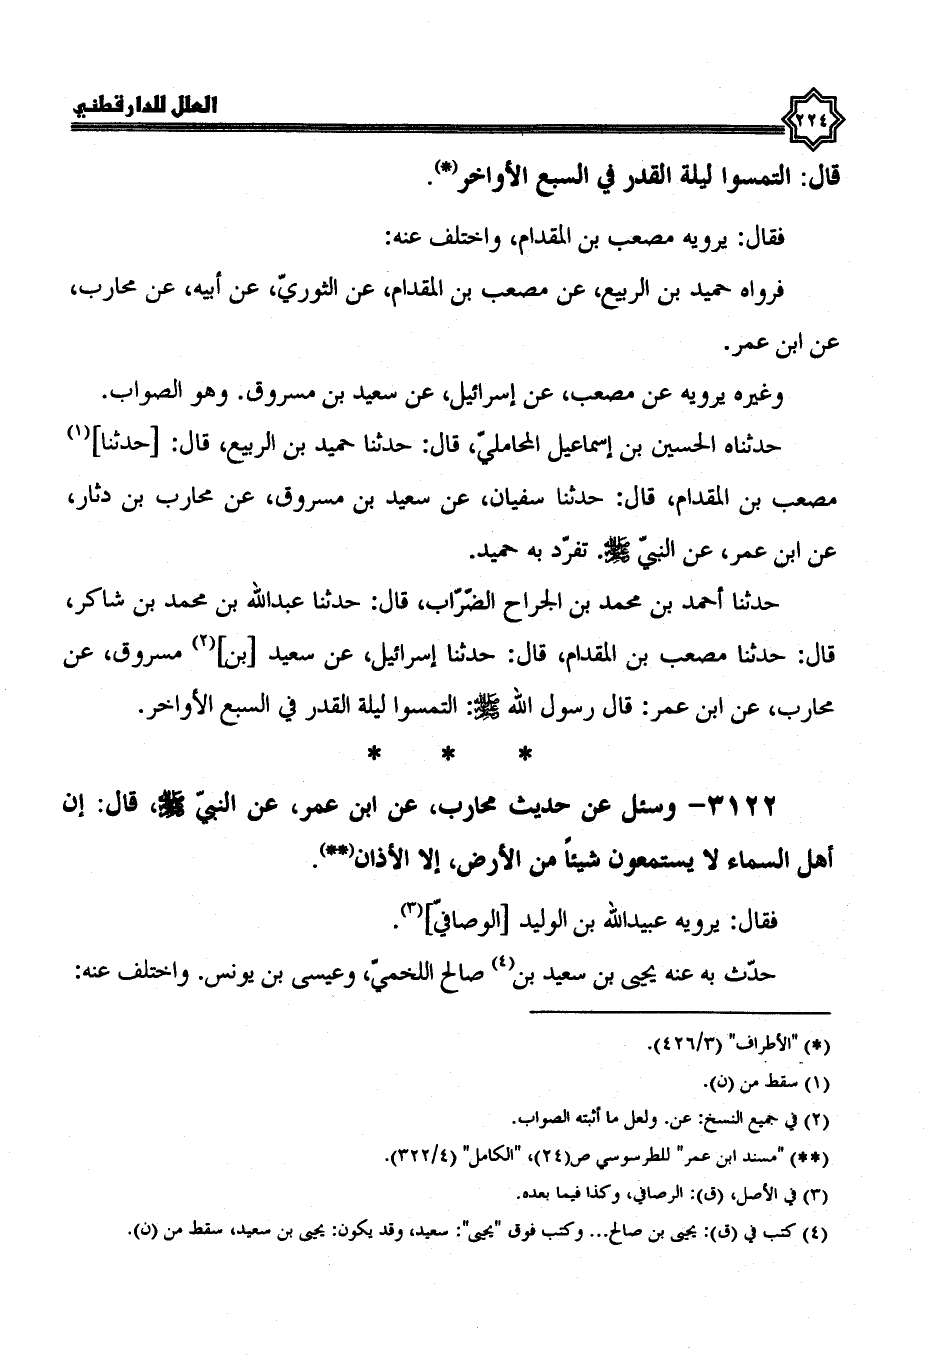 العلل للدارقطني
٢٢٤
قال: التمسوا ليلة القدر في السبع الأواخر(*).
فقال: يرويه مصعب بن المقدام، واختلف عنه:
فرواه حميد بن الربيع، عن مصعب بن المقدام، عن الثوريّ، عن أبيه، عن محارب،
عن ابن عمر.
وغيره يرويه عن مصعب، عن إسرائيل، عن سعيد بن مسروق. وهو الصواب.
حدثناه الحسين بن إسماعيل المحامليّ، قال: حدثنا حميد بن الربيع، قال: [حدثنا](١)
مصعب بن المقدام، قال: حدثنا سفيان، عن سعيد بن مسروق، عن محارب بن دثار،
عن ابن عمر، عن النبيّ ﷺ. تفرّد به حميد.
حدثنا أحمد بن محمد بن الجراح الضّرّاب، قال: حدثنا عبدالله بن محمد بن شاكر،
قال: حدثنا مصعب بن المقدام، قال: حدثنا إسرائيل، عن سعيد [بن](٢) مسروق، عن
محارب، عن ابن عمر: قال رسول الله ﷺ: التمسوا ليلة القدر في السبع الأواخر.
* * *
٣١٢٢- وسئل عن حديث محارب، عن ابن عمر، عن النبيّ ﷺ، قال: إن
أهل السماء لا يستمعون شيئاً من الأرض، إلا الأذان(**).
فقال: يرويه عبيدالله بن الوليد [الوصافيّ](٣).
حدّث به عنه يحيى بن سعيد بن(٤) صالح اللخميّ، وعيسى بن يونس. واختلف عنه:
(*) "الأطراف" (٤٢٦/٣).
(١) سقط من (ن).
(٢) في جميع النسخ: عن. ولعل ما أثبته الصواب.
(**) "مسند ابن عمر" للطرسوسي ص(٢٤)، "الكامل" (٣٢٢/٤).
(٣) في الأصل، (ق): الرصافي، وكذا فيما بعده.
(٤) كتب في (ق): يحيى بن صالح... وكتب فوق "يحيى": سعيد، وقد يكون: يحيى بن سعيد، سقط من (ن).